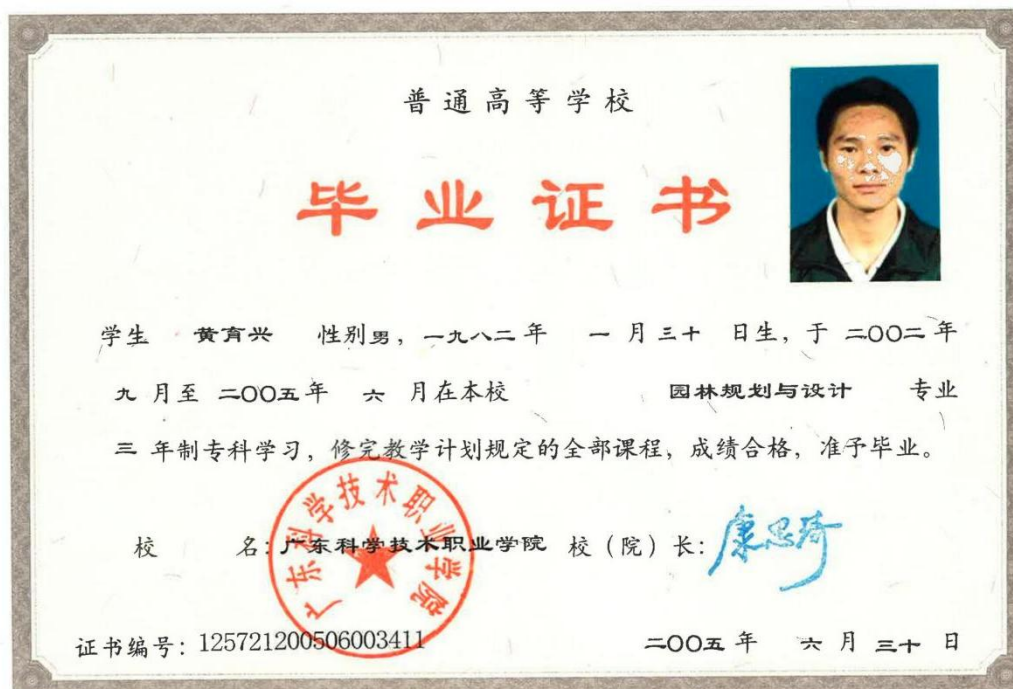 普通高等学校
毕业证书
学生 黄育兴 性别男，一九八二年 一月三十日生，于二〇〇二年
九月至二〇〇五年 六月在本校 园林规划与设计 专业
三年制专科学习，修完教学计划规定的全部课程，成绩合格，准予毕业。
校 名：广东科学技术职业学院 校（院）长：康思琦
广东科学技术职业学院
证书编号：125721200506003411 二〇〇五年 六月三十日